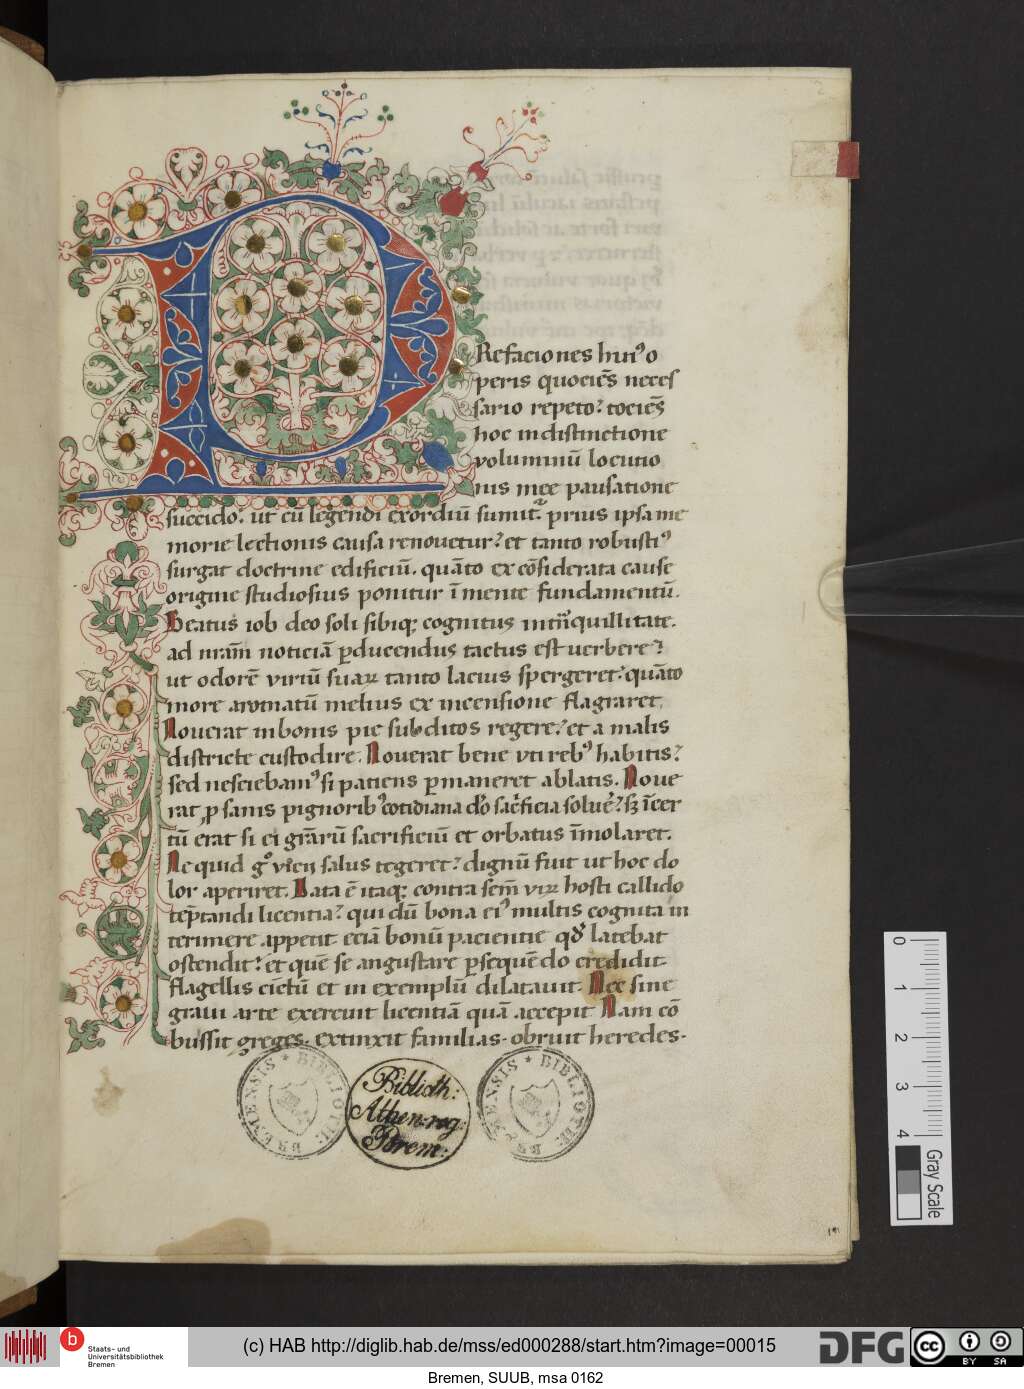 P
Refaciones huiꝰ o
peris quocie͂s neces
sario repeto? tocie͂s
hoc in distinctione
voluminū locutio
nis mee pausatione
succido. ut cū legendi exordiū sumit᷑ prius ipsa me
morie lectionis causa renouetur? et tanto robustiꝰ
surgat doctrine edificiū. quāto ex cōsiderata cause
origine studiosius ponitur ī mente fundamentū.
Beatus iob deo soli sibiqꝫ cognitus
ad nr̄am noticiā ꝑducendus tactus est uerbere?
ut odorē virtū suaꝝ tanto lacius spergeret? quāto
more aromatū melius ex incensione flagraret.
Nouerat in bonis pie subditos regere? et a malis
districte custodire. Nouerat bene vti rebꝰ habitis?
sed nesciebamꝰ si patiens ꝑmaneret ablatis. Noue
rat ꝓ sanis pignoribꝰ cotidiana dō sac̄ficia soluē? sꝫ īcer
tū erat si ei gr̄arū sacrificiū et orbatus īmolaret.
Ne quid gͦ salus tegeret? dignū fuit ut hoc do
lor aperiret. Data ē itaqꝫ contra hosti callido
tēptandi licentia? qui dū bona eiꝰ multis cognita in
terimere appetit eciā bonū pacientie qd̄ latebat
ostendit? et quē se angustare ꝑsequēdo credidit
flagellis et in exemplū dilatauit. Nec sine
graui arte exercuit licentiā quā accepit Nam cō
bussit greges. extinxit familias. obruit heredes.
BREMENSIS ★ BIBLIOTH:
Biblioth:
Athen: reg:
Brem:
BREMENSIS ★ BIBLIOTH:
0
1
2
3
4
Gray Scale
Staats- und
Universitätsbibliothek
Bremen
(c) HAB http://diglib.hab.de/mss/ed000288/start.htm?image=00015
DFG
cc
BY SA
Bremen, SUUB, msa 0162